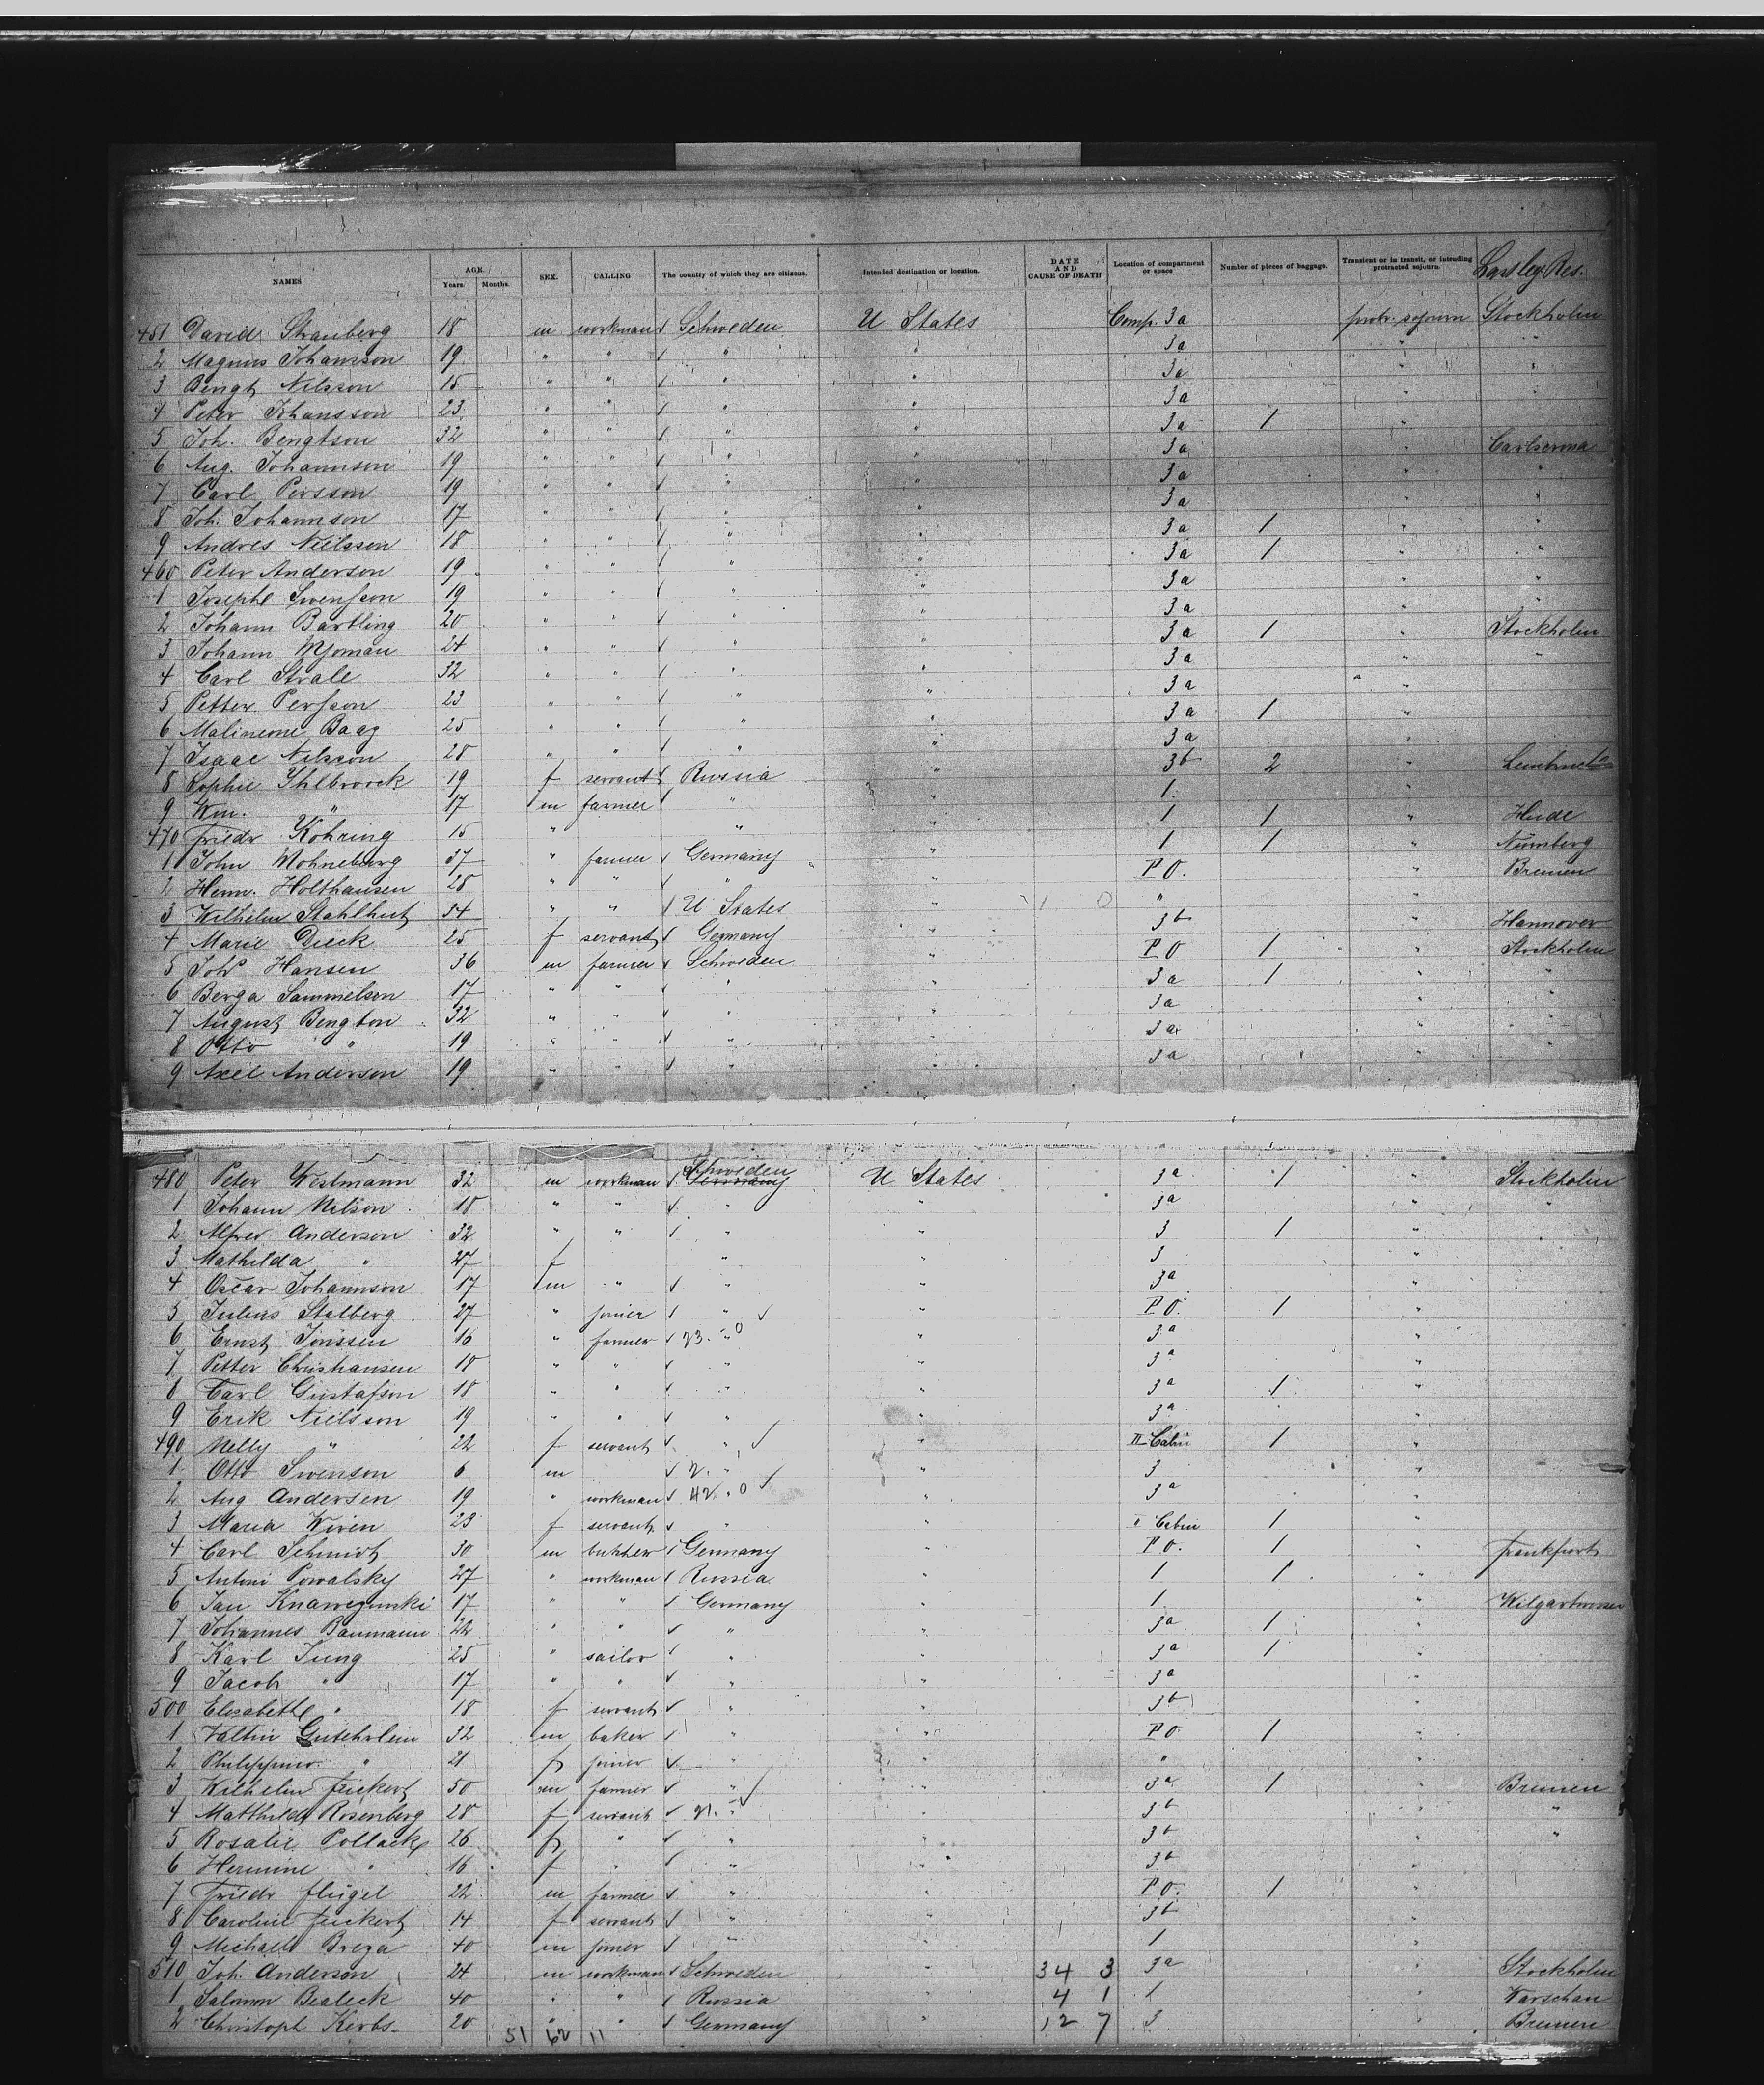 NAMES AGE. Years. Months. SEX. CALLING The country of which they are citizens. Intended destination or location. DATE AND CAUSE OF DEATH Location of compartment or space Number of pieces of baggage. Transient or in transit, or intending protracted sojourn. Res.
451 David Stranberg 18 m workman Schweden U States Comp. 3a protr. sojourn Stockholm
2 Magnus Johansson 19 " " " " 3a " "
3 Bengt Nilsson 15 " " " " 3a " "
4 Peter Johansson 23 " " " " 3a "
5 Joh. Bengtson 32 " " " " 3a 1 "
6 Aug. Johannson 19 " " " " 3a "
7 Carl Persson 19 " " " " 3a " "
8 Joh. Johannson 17 " " " " 3a "
9 Andres Nielsson 18 " " " " 3a 1 " "
460 Peter Anderson 19 " " " " 3a 1 " "
1 Joseph Swensson 19 " " " " 3a " "
2 Johann Bartling 20 " " " " 3a "
3 Johann 24 " " " " 3a 1 " Stockholm
4 Carl Strale 32 " " " " 3a " "
5 Petter Persson 23 " " " " 3a "
6 Baag 25 " " " " 3a 1 "
7 Isaac Nilsson 28 " " " " 3a "
8 Sophie Ihlbrock 19 f servant Russia " 3b 2 "
9 Wm. " 17 m farmer " " 1 "
470 Friedr Kohring 15 " " " 1 1 " Hude
1 John Wohneberg 37 " farmer Germany " 1 1 " Nürnberg
2 Herm. Holthausen 28 " " " " P O. Bremen
3 Wilhelm Stahlhut 54 " " U States " "
4 Marie Dieck 25 f servant Germany " 3b " Hannover
5 Joh Hansen 36 m farmer Schweden " P O 1 " Stockholm
6 Berga Sammelson 17 " " " " 3a 1 " "
7 August Bengton 32 " " " " 3a " "
8 Otto " 19 " " " " 3a " "
9 Axel Anderson 19 " " " " 3a " "
480 Peter Westmann 32 m workman Schweden U States 3a 1 " Stockholm
1 Johann Nilson 18 " " " 3a " "
2 Alfred Anderson 32 " " " " 3 1 "
3 Mathilda " 27 f " " 3 "
4 Oscar Johannson 17 m " " " 3a "
5 Julius Stalberg 27 " joiner " " P O. 1 "
6 Ernst Jonssen 16 " farmer 23. " 0 " 3a "
7 Petter Christiansen 18 " " " 3a "
8 Carl Gustafson 18 " " " " 3a 1 "
9 Erik Nielsson 19 " " " " 3a "
490 Nelly " 22 f servant " " II Cabin 1 "
1 Otto Swenson 6 m 2. " " 3 "
2 Aug Andersen 19 " workman 42. " 0 " 3a "
3 Maria Wiren 23 f servant " " I Cabin 1 "
4 Carl Schmidt 30 m butcher Germany " P O. 1 " Frankfurt
5 Antoni Powalsky 27 " workman Russia " 1 1 "
6 Jan 17 " " Germany " 1 "
7 Johannes Baumann 22 " " " " 3a 1 "
8 Karl Jung 25 " sailor " " 3a 1 "
9 Jacob " 17 " " " " 3a "
500 Elisabeth " 18 f servant " " 3b "
1 Valtin 32 m baker " " P O. 1 "
2 " 21 f joiner " " " "
3 Wilhelm Feickert 50 m farmer " " 3a 1 " Bremen
4 Mathilde Rosenberg 28 f servant 21. " " 3b " "
5 Rosalie Pollack 26 f " " " 3b " "
6 Hermine " 16 f " " " 3b "
7 Friedr Flügel 22 m farmer " " P O. 1 "
8 Caroline Feickert 14 f servant " " 3b "
9 Michael Brega 40 m joiner " " 1 "
510 Joh. Anderson 24 m workman Schweden " 34 3 3a " Stockholm
1 Salomon Bealeck 40 " " Russia " 4 1 1 " Warschau
2 Christoph Kerbs 20 " " Germany " 12 7 3 " Bremen
51 62 11